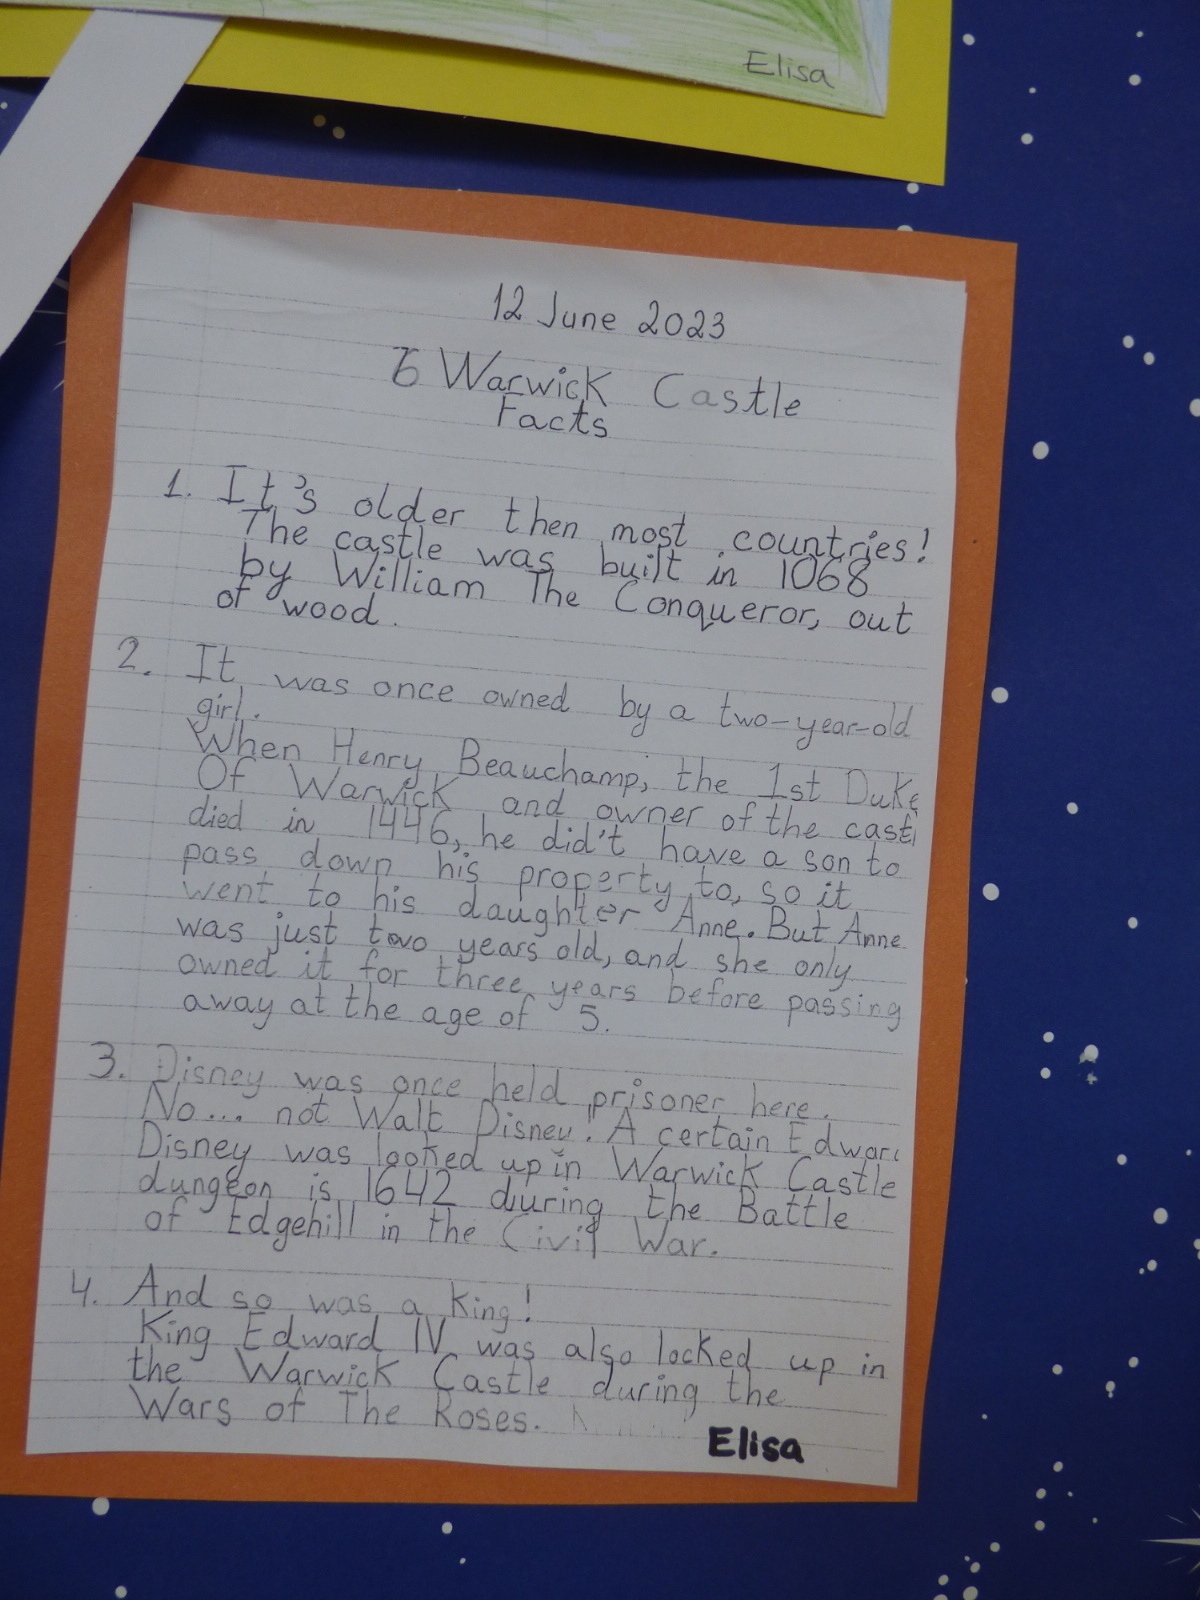 Elisa
12 June 2023
6 Warwick Castle
Facts
1. It's older then most countries!
The castle was built in 1068
by William The Conqueror, out
of wood.
2. It was once owned by a two-year-old
girl.
When Henry Beauchamp, the 1st Duke
Of Warwick and owner of the castl
died in 1446, he did't have a son to
pass down his property to, so it
went to his daughter Anne. But Anne
was just two years old, and she only
owned it for three years before passing
away at the age of 5.
3. Disney was once held prisoner here.
No... not Walt Disney! A certain Edwar
Disney was locked up in Warwick Castle
dungeon is 1642 during the Battle
of Edgehill in the Civil War.
4. And so was a King!
King Edward IV was also locked up in
the Warwick Castle during the
Wars of The Roses.
Elisa